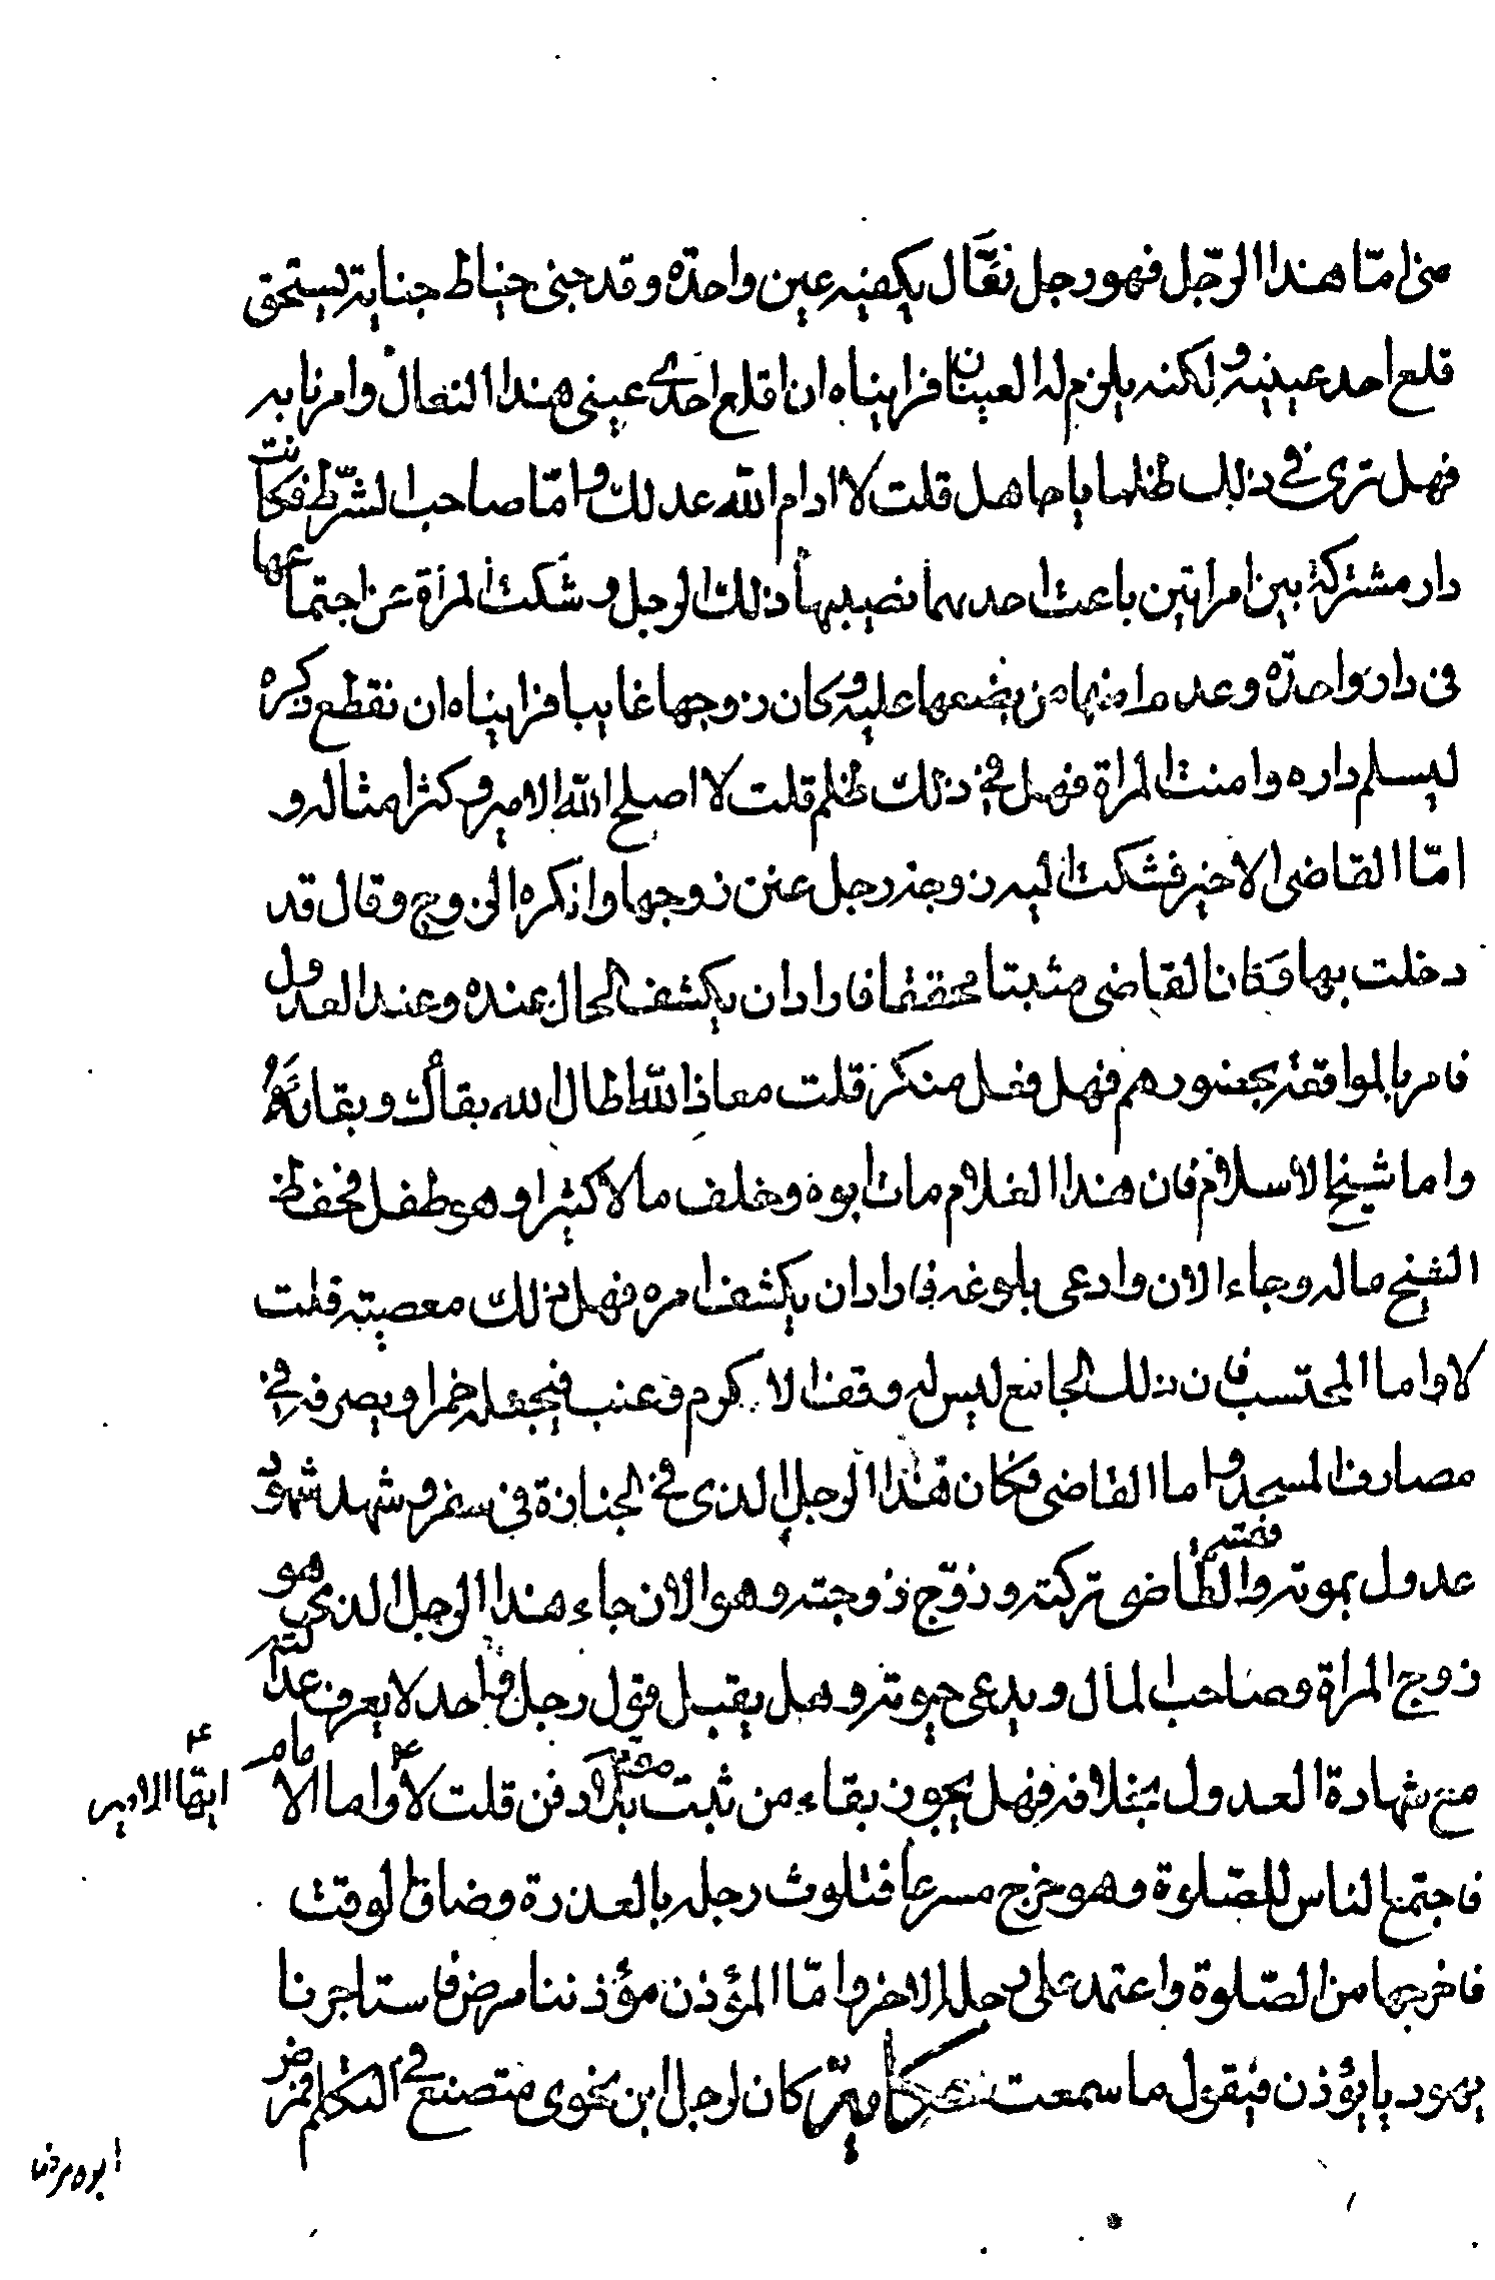 منى امّا هذا الرّجل فهو رجل نعّال يكفيه عين واحدة وقد جنى خياط جناية يستحق
قلع احد عينيه ولكنه يلزم له العينان فراينا ان اقلع احدى عينى هذا النعال وامرنا به
فهل ترى فى ذلك ظلما يا جاهل قلت لا ادام الله عدلك وامّا صاحب الشّرط فكانت
دار مشتركة بين امراتين باعت احدىهما نصيبها ذلك الرجل وشكت المراة عن اجتماعها
فى دار واحدة وعدم امنها من بضعها عليه وكان زوجها غايبا فراينا ان نقطع ذكره
ليسلم داره وامنت المراة فهل فى ذلك ظلم قلت لا اصلح الله الامير وكثر امثاله و
امّا القاضى الاخير فشكت اليه زوجة رجل عنن زوجها وانكره الزوج وقال قد
دخلت بها وكان القاضى مثبتا محققا فاراد ان يكشف الحال عنده وعند العدول
فامر بالمواقعة بحضورهم فهل فعل منكر قلت معاذ الله اطال الله بقاك وبقائهم
واما شيخ الاسلام فان هذا الغلام مات ابوه وخلف مالا كثيرا وهو طفل فحفظ
الشيخ ماله وجاء الان وادعى بلوغه فاراد ان يكشف امره فهل ذلك معصية قلت
لا واما المحتسب فان ذلك الجامع ليس له وقف الا كروم وعنب فيجعله خمرا ويصرفه فى
مصارف المسجد واما القاضى فكان هذا الرجل الذى فى الجنازة فى سفر وشهد شهود
عدول بموته والقاضى قسم تركته وزوّج زوجته وهو الان جاء هذا الرجل الذى هو
زوج المراة وصاحب المال ويدعى حيوته وهل يقبل قول رجل واحد لا يعرف عدالته
مع شهادة العدول بخلافه فهل يجوز بقاء من ثبت موته بلا دفن قلت لا واما الامام
ايها الامير
فاجتمع الناس للصّلوة وهو خرج مسرعا فتلوث رجله بالعذرة وضاق الوقت
فاخرجها من الصّلوة واعتمد على رجله الاخر وامّا المؤذن مؤذننا مرض فاستاجرنا
يهوديا يؤذن فيقول ما سمعت حكاية كان لرجل ابن نحوى متصنع فى التكلم فمرض
ابوه مرضا